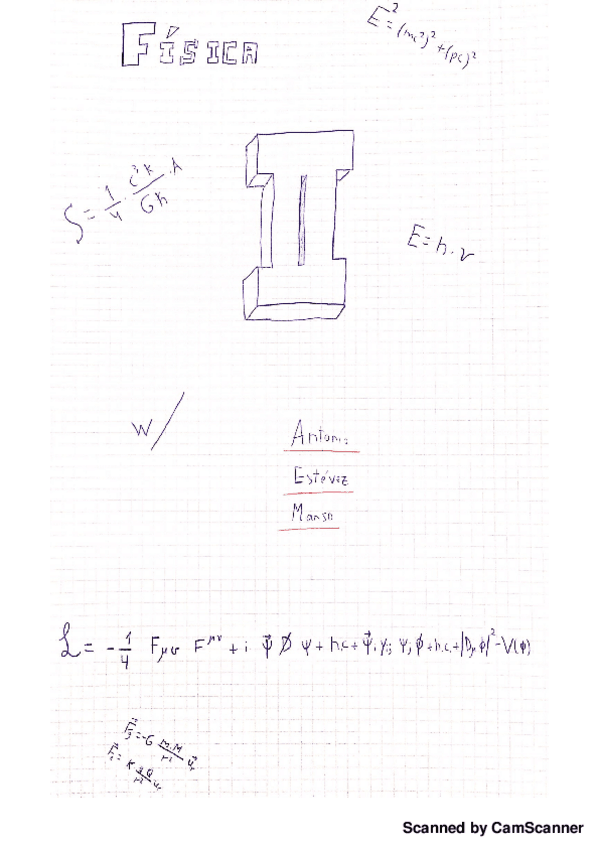 Física
E² = (mc²)² + (pc)²
S = 1/4 · c³k/Għ · A
I
E = h·ν
w/
Antonio
Estévez
Manso
ℒ = -1/4 Fμν F^μν + i ψ̄ D̸ ψ + h.c + ψ̄ᵢ yᵢⱼ ψⱼ ϕ + h.c. + |Dμ ϕ|² - V(ϕ)
F⃗g = -G m·M/r² u⃗r
K q·Q/r² u⃗r
Scanned by CamScanner